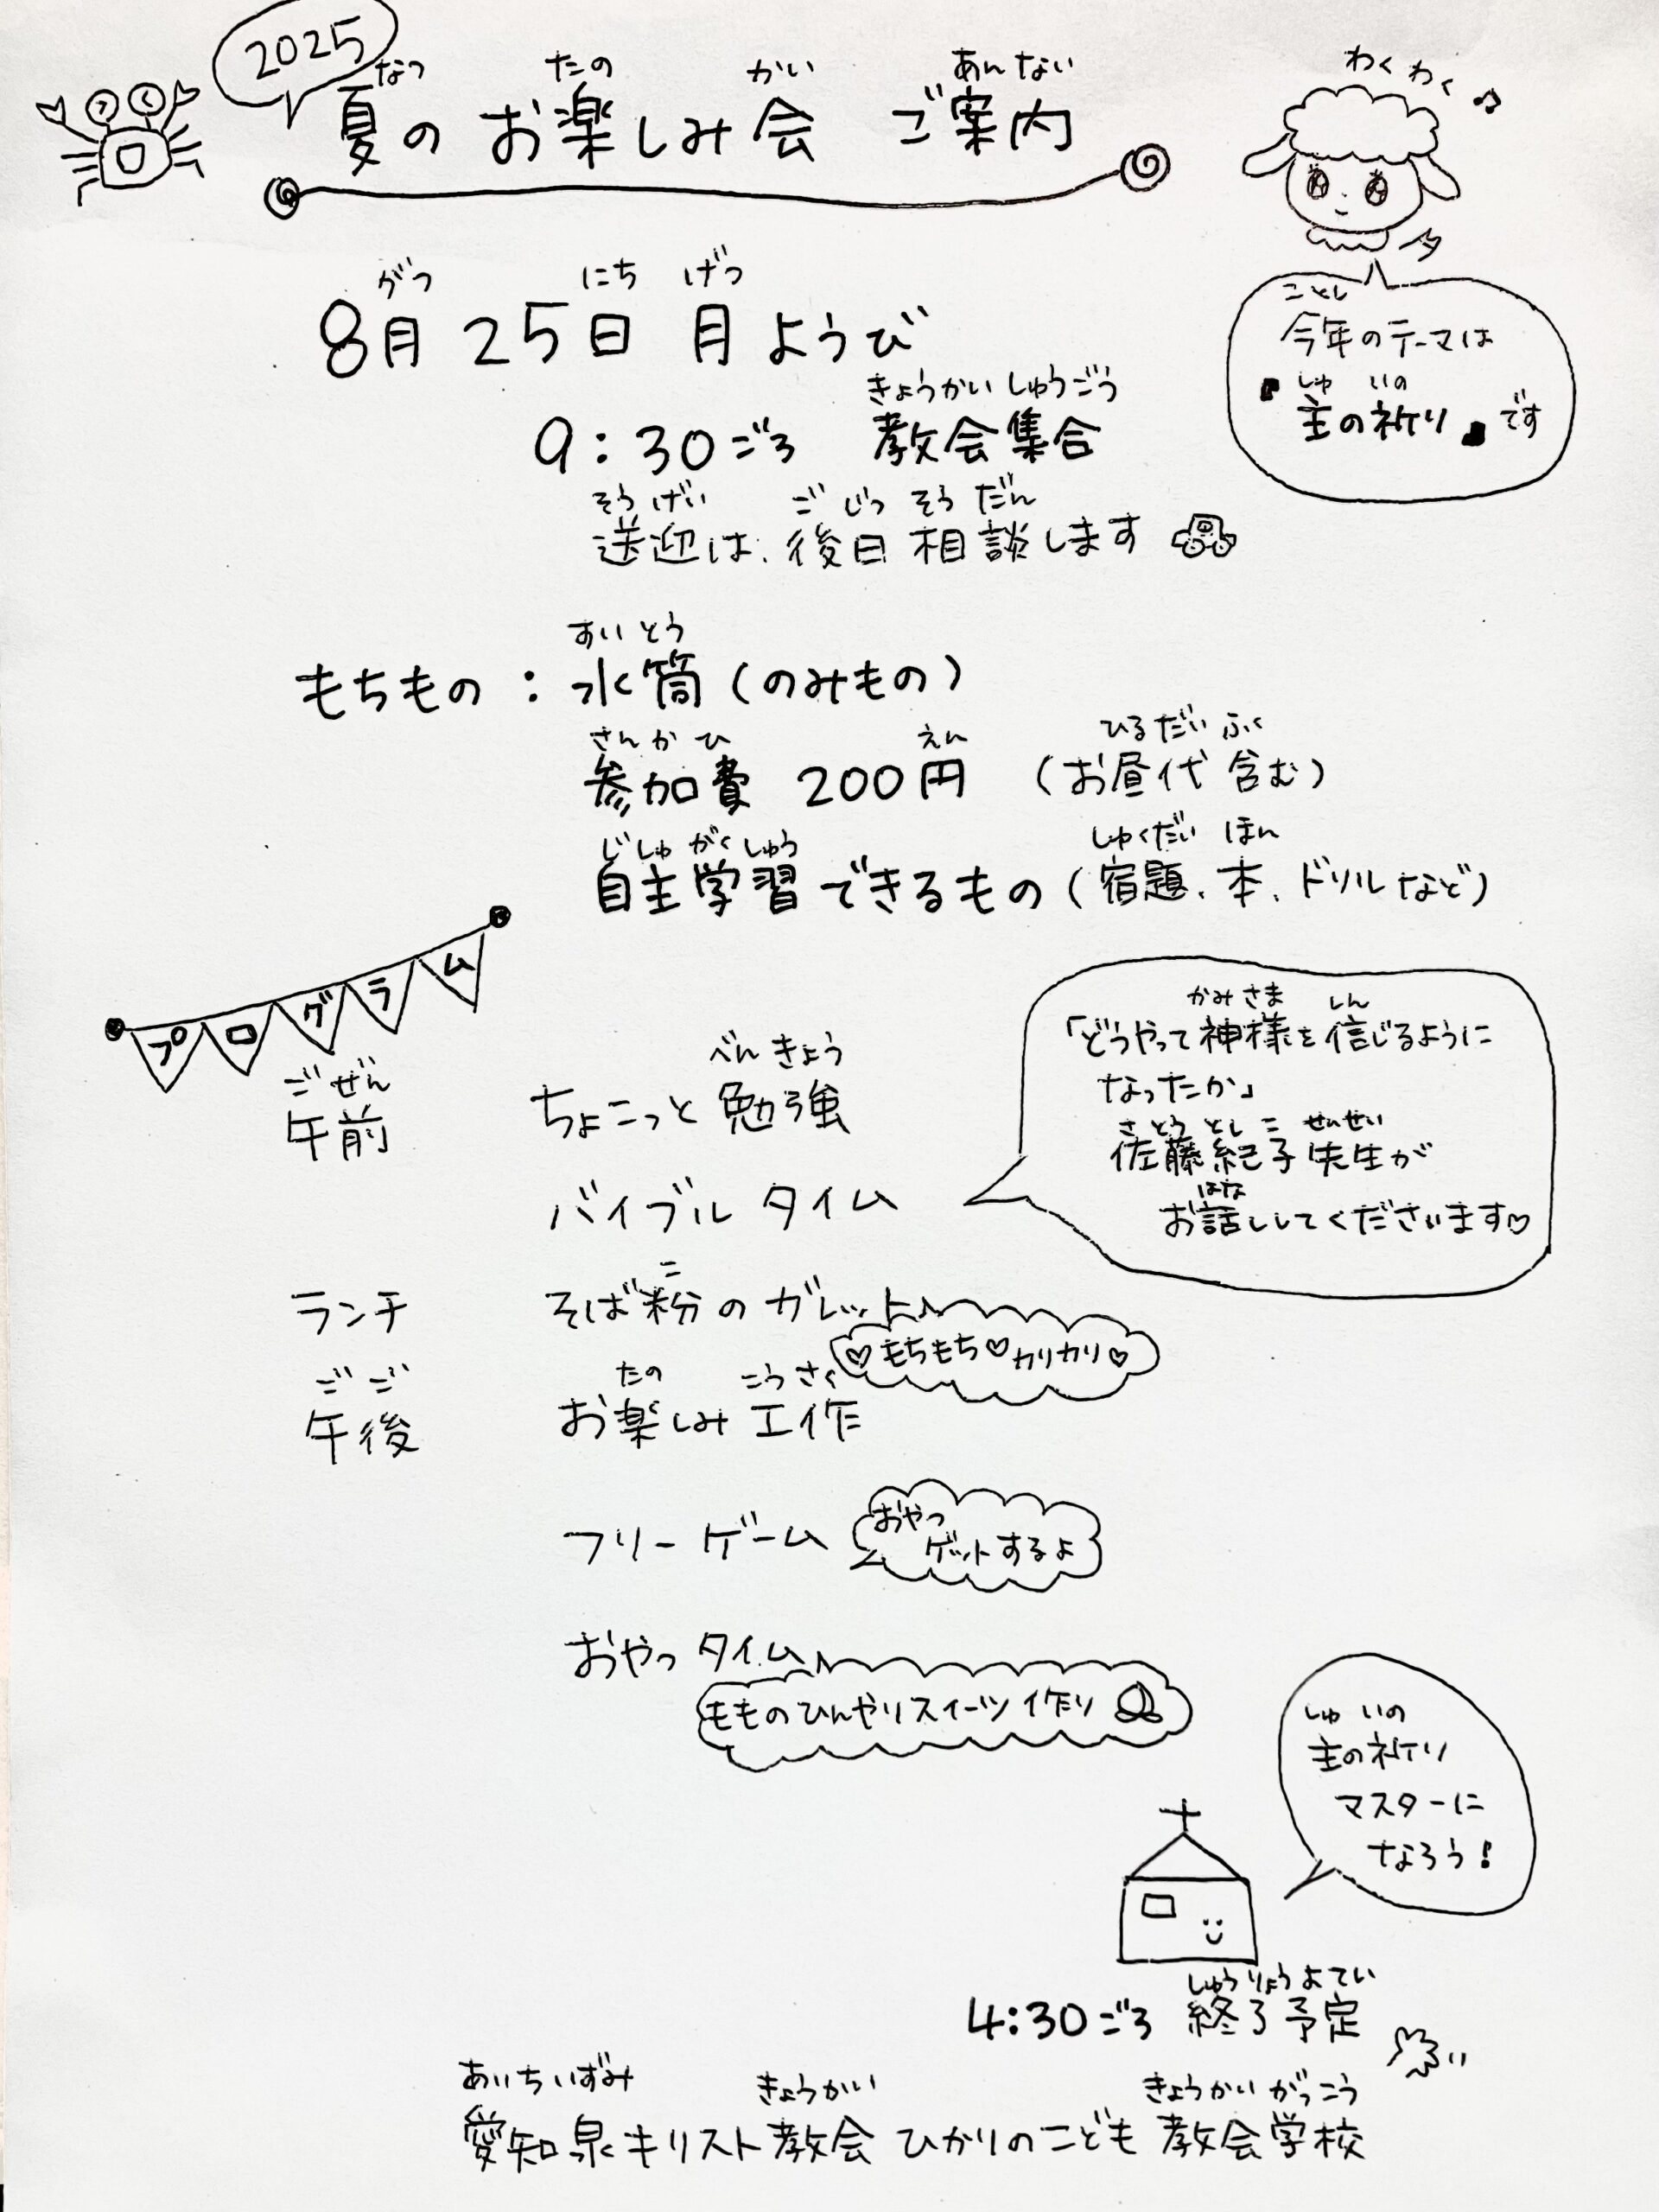 2025
なつ たの かい あんない
夏の お楽しみ会 ご案内
わくわく♪
がつ にち げつ
8月25日 月ようび
ことし
今年のテーマは
しゅ いの
『主の祈り』です
きょうかい しゅうごう
9:30ごろ 教会集合
そうげい ごじつ そうだん
送迎は、後日相談します
すいとう
もちもの:水筒(のみもの)
さんかひ えん ひるだい ふく
参加費 200円 (お昼代 含む)
じしゅ がくしゅう しゅくだい ほん
自主学習できるもの(宿題、本、ドリルなど)
プログラム
ごぜん べんきょう
午前 ちょこっと勉強
バイブル タイム
かみさま しん
「どうやって神様を信じるように
なったか」
さとう としこ せんせい
佐藤紀子先生が
はな
お話ししてくださいます♡
こ
ランチ そば粉のガレット
♡もちもち♡カリカリ♡
ごご たの こうさく
午後 お楽しみ工作
フリーゲーム
おやつ
ゲットするよ
おやつ タイム
もものひんやりスイーツ作り
しゅ いの
主の祈り
マスターに
なろう!
しゅうりょうよてい
4:30ごろ 終了予定
あいちいずみ きょうかい きょうかい がっこう
愛知泉キリスト教会 ひかりのこども教会学校